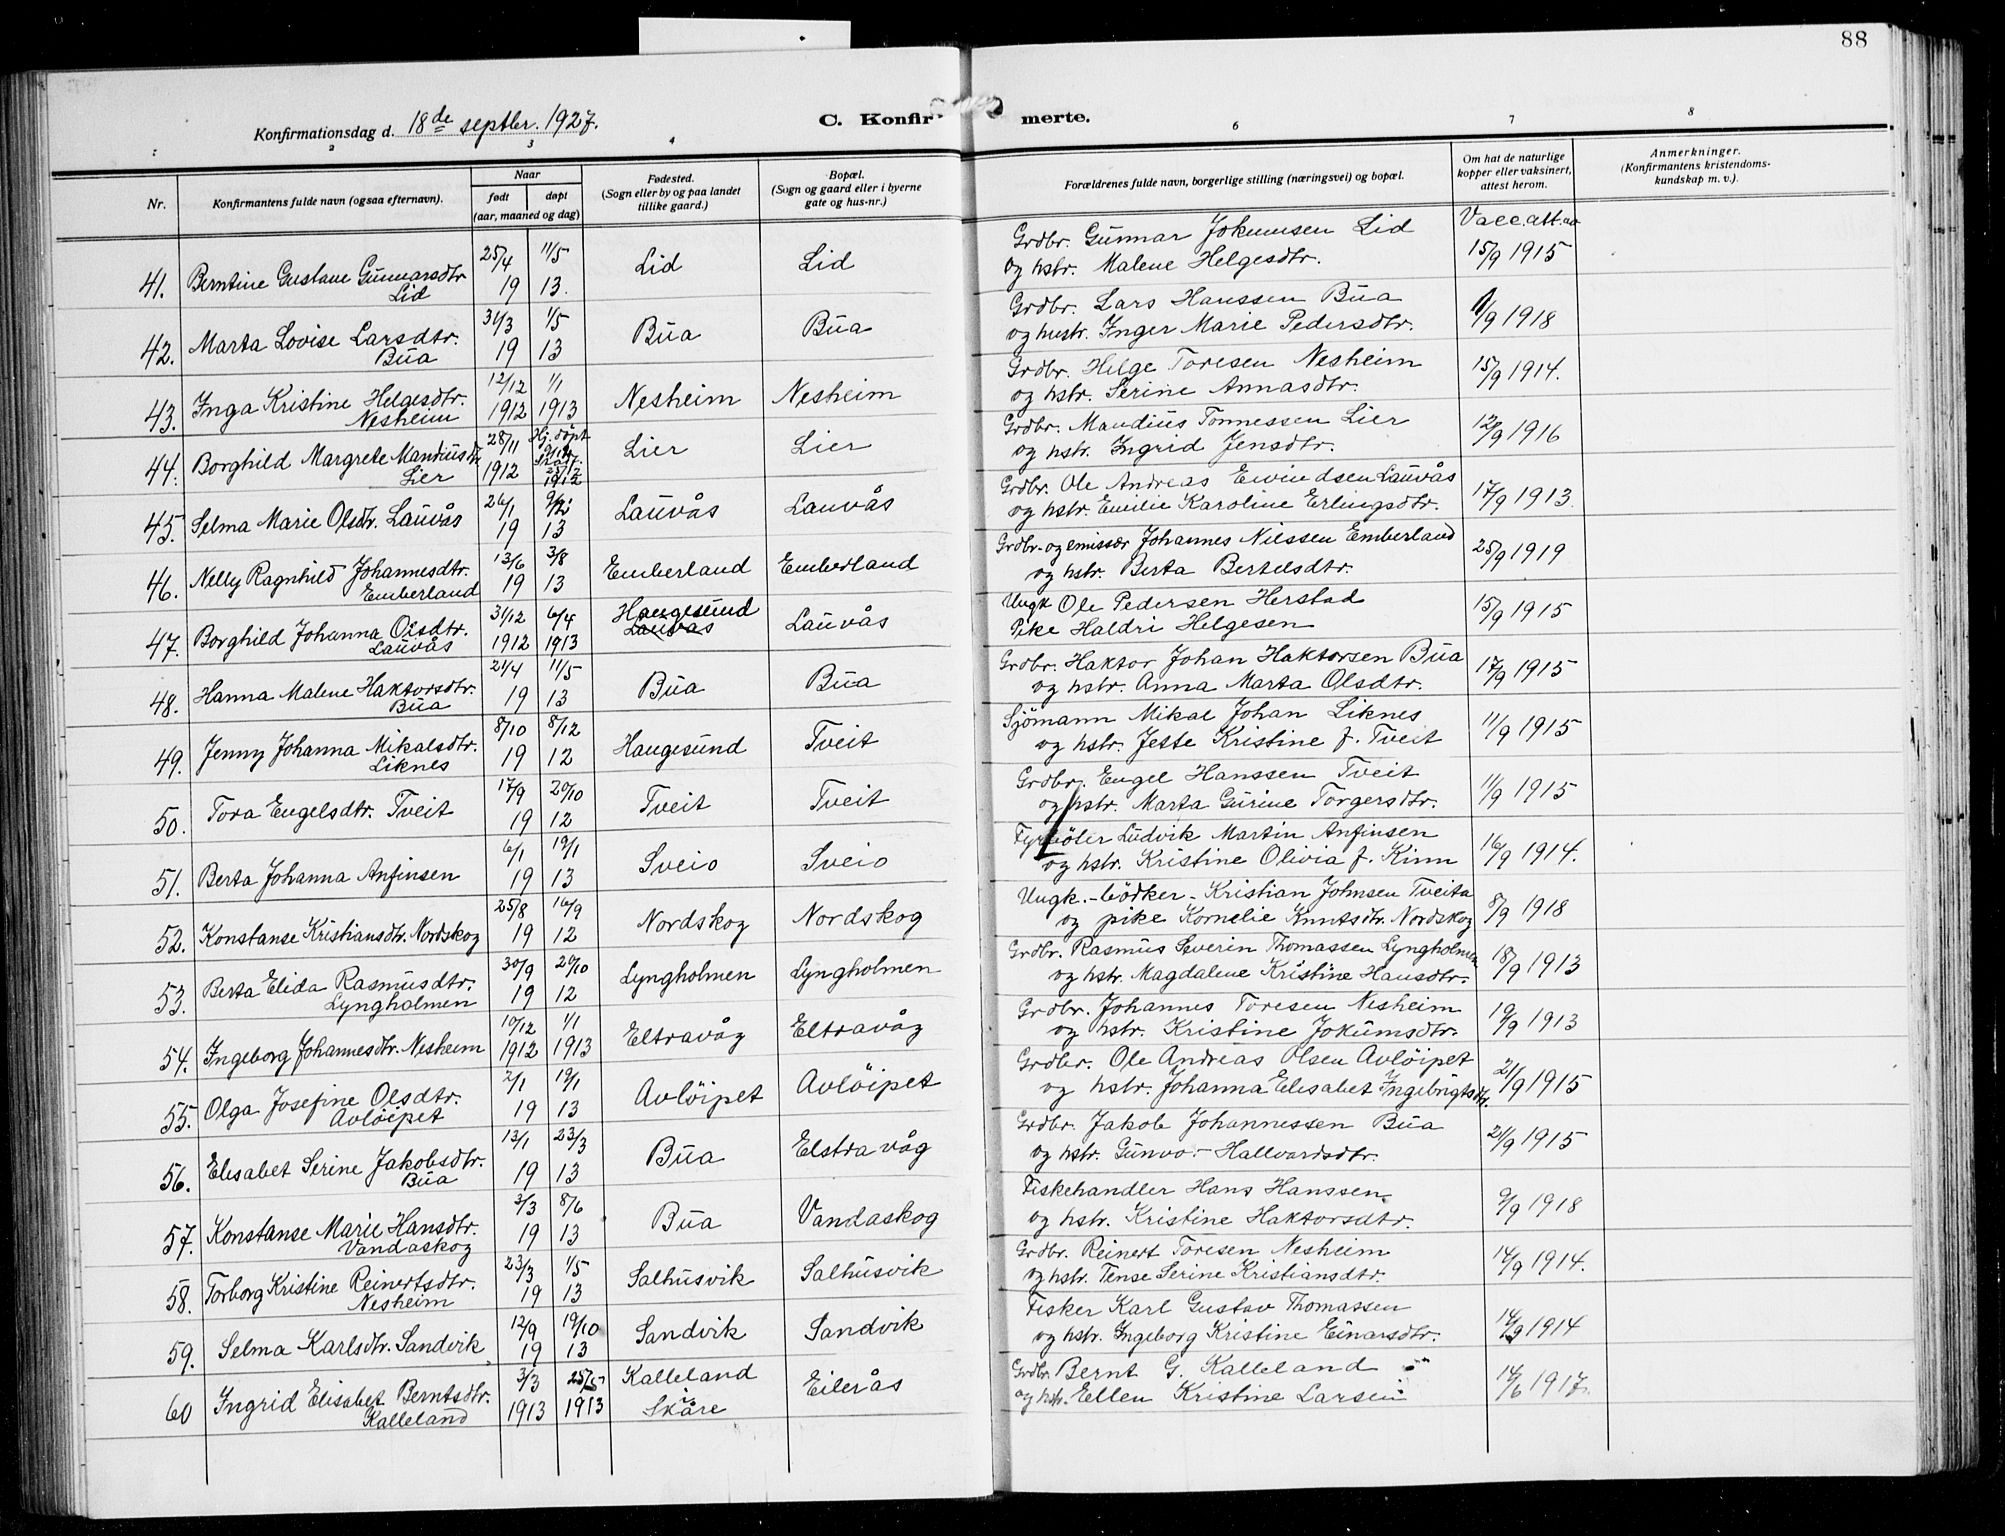 88
Konfirmationsdag d. 18de septbr. 1927.
C. Konfir merte.
1 2 3 4 6 7 8
Nr.
Konfirmantens fulde navn (ogsaa efternavn).
Naar
født døpt
(aar, maaned og dag)
Fødested.
(Sogn eller by og paa landet
tillike gaard.)
Bopæl.
(Sogn og gaard eller i byerne
gate og hus-nr.)
Forældrenes fulde navn, borgerlige stilling (næringsvei) og bopæl.
Om hat de naturlige
kopper eller vaksinert,
attest herom.
Anmerkninger.
(Konfirmantens kristendoms-
kundskap m. v.).
Vacc. att. av
25/4 11/5 Lid Lid Grdbr. Gunnar Jokumsen Lid
41. Berntine Gustave Gunnarsdtr 19 13. og hstr. Malene Helgesdtr. 15/9 1915
Lid
31/3 1/5 Bua Bua Grdbr. Lars Hanssen Bua
42. Marta Lovise Larsdtr. 19 13 og hustr. Inger Marie Pedersdtr. 1/9 1918
Bua
12/12 1/1 Nesheim Nesheim Grdbr. Helge Toresen Nesheim
43. Inga Kristine Helgesdtr. 1912 1913 og hstr. Serine Annasdtr. 15/9 1914.
Nesheim
28/11 Hj. döpt Lier Lier Grdbr. Mandius Tonnessen Lier
44. Borghild Margrete Mandiusdtr 1912 25/12 1912 og hstr. Ingrid Jensdtr. 12/9 1916
Lier
26/1 Lauvås Lauvås Grdbr. Ole Andreas Eivindsen Lauvås
45. Selma Marie Olsdtr. Lauvås 19 13 og hstr. Emilie Karoline Erlingsdtr. 17/9 1913.
13/6 3/8 Emberland Emberland Grdbr. og emissær Johannes Nilssen Emberland
46. Nelly Ragnhild Johannesdtr. 19 13 og hstr. Berta Bertelsdtr. 25/9 1919
Emberland
31/12 6/4 Haugesund Lauvås Lauvås Ungk Ole Pedersen Herstad
47. Borghild Johanna Olsdtr. 1912 1913 Pike Haldri Helgesen 15/9 1915
Lauvås
21/4 11/5 Bua Bua Grdbr. Haktor Johan Haktorsen Bua
48. Hanna Malene Haktorsdtr. 19 13 og hstr. Anna Marta Olsdtr. 17/9 1915
Bua
8/10 8/12 Haugesund Tveit Sjömann Mikal Johan Liknes
49. Jenny Johanna Mikalsdtr. 19 12 og hstr. Jette Kristine f. Tveit 11/9 1915
Liknes
17/9 20/10 Tveit Tveit Grdbr. Engel Hanssen Tveit
50. Tora Engelsdtr. Tveit 19 12 og hstr. Marta Gurine Torgersdtr. 11/9 1915
6/1 19/1 Sveio Sveio Fyrböter Ludvik Martin Anfinsen
51. Berta Johanna Anfinsen 19 13 og hstr. Kristine Olivia f. Kinn 16/9 1914.
25/8 16/9 Nordskog Nordskog Ungk. - bödker - Kristian Johnsen Tveita
52. Konstanse Kristiansdtr. Nordskog 19 12 og pike Kornelie Knutsdtr. Nordskog 8/9 1918
30/9 20/10 Lyngholmen Lyngholmen Grdbr. Rasmus Severin Thomassen Lyngholmen
53. Berta Elida Rasmusdtr. 19 12 og hstr. Magdalene Kristine Hansdtr. 18/9 1913
Lyngholmen
10/12 1/1 Eltravåg Eltravåg Grdbr. Johannes Toresen Nesheim
54. Ingeborg Johannesdtr. Nesheim 1912 1913 og hstr. Kristine Jokumsdtr. 19/9 1913
2/1 19/1 Avlöipet Avlöipet Grdbr. Ole Andreas Olsen Avlöipet
55. Olga Josefine Olsdtr. 19 13 og hstr. Johanna Elisabet Ingebrigtsdtr. 21/9 1915
Avlöipet
13/1 23/3 Bua Elstravåg Grdbr. Jakob Johannessen Bua
56. Elisabet Serine Jakobsdtr. 19 13 og hstr. Gunvor Hallvardsdtr. 21/9 1915
Bua
3/3 8/6 Bua Vandaskog Fiskehandler Hans Hanssen
57. Konstanse Marie Hansdtr. 19 13 og hstr. Kristine Haktorsdtr. 9/9 1918
Vandaskog
23/3 1/5 Salhusvik Salhusvik Grdbr. Reinert Toresen Nesheim
58. Torborg Kristine Reinertsdtr. 19 13 og hstr. Tense Serine Kristiansdtr. 14/9 1914.
Nesheim
12/9 19/10 Sandvik Sandvik Fisker Karl Gustav Thomassen
59. Selma Karlsdtr. Sandvik 19 13 og hstr. Ingeborg Kristine Einarsdtr. 14/9 1914
3/3 25/5 Kalleland Eilerås Grdbr. Bernt G. Kalleland
60 Ingrid Elisabet Berntsdtr. 1913 1913 Skåre og hstr. Ellen Kristine Larsen 14/6 1917.
Kalleland